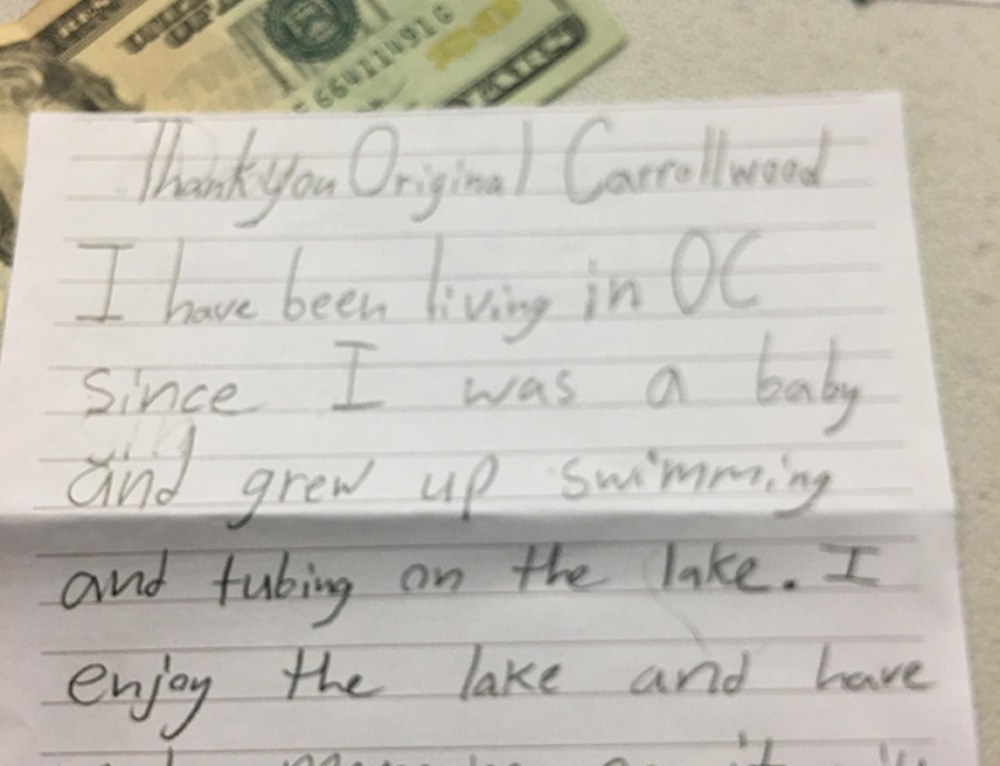 66011491G
Thank you Original Carrollwood
I have been living in OC
since I was a baby
and grew up swimming
and tubing on the lake. I
enjoy the lake and have